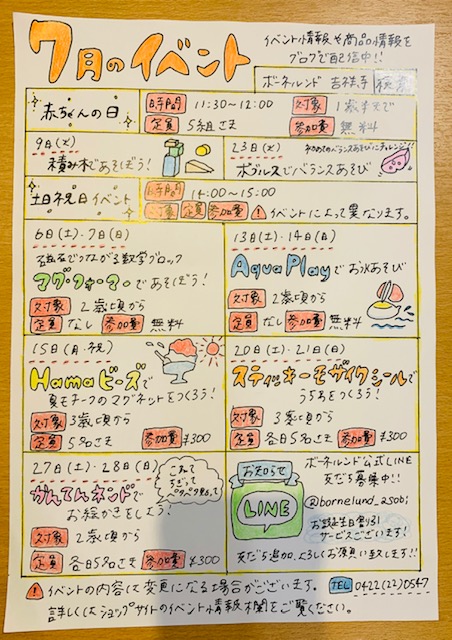 7月のイベント
イベント情報や商品情報を
ブログで配信中!!
ボーネルンド 吉祥寺
検索
赤ちゃんの日
時間 11:30〜12:00
対象 1歳半まで
定員 5組さま
参加費 無料
9日(火)
積み木であそぼう!
23日(火)
初めてのバランスあそびにチャレンジ!!
ボブルスでバランスあそび
土日祝日イベント
時間 14:00〜15:00
対象 定員 参加費 イベントによって異なります。
6日(土)・7日(日)
磁石でつながる数学ブロック
マグ・フォーマーであそぼう!
対象 2歳頃から
定員 なし 参加費 無料
13日(土)・14日(日)
Aqua Playでお水あそび
対象 2歳頃から
定員 なし 参加費 無料
15日(月・祝)
Hamaビーズで
夏モチーフのマグネットをつくろう!
対象 3歳頃から
定員 5名さま 参加費 ¥300
20日(土)・21日(日)
スティッキーモザイクシールで
うちわをつくろう!
対象 3歳頃から
定員 各日5名さま 参加費 ¥300
27日(土)・28日(日)
こねて
ちぎって
ペタペタ集めて
かんてんネンドで
お絵かきをしよう!
対象 2歳頃から
定員 各日5名さま 参加費 ¥300
お知らせ
LINE
ボーネルンド公式LINE
友だち募集中!!
@bornelund_2500j
お誕生日割引
サービスございます!
友だち追加、よろしくお願い致します!!
イベントの内容は変更になる場合がございます。
TEL 0422(22)0547
詳しくはショップサイトのイベント情報欄をご覧ください。